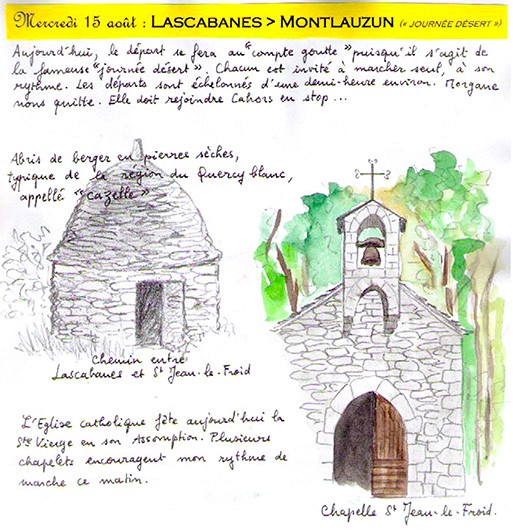 Mercredi 15 août : LASCABANES > MONTLAUZUN (« JOURNÉE DÉSERT »)
Aujourd'hui, le départ se fera au "compte goutte" puisqu'il s'agit de
la fameuse "journée désert". Chacun est invité à marcher seul, à son
rythme. Les départs sont échelonnés d'une demi-heure environ. Morgane
nous quitte. Elle doit rejoindre Cahors en stop ...
Abris de berger en pierres sèches,
typique de la région du Quercy blanc,
appellé "cazelle"
Chemin entre
Lascabanes et St Jean-le-Froid
L'Eglise catholique fête aujourd'hui la
Ste Vierge en son Assomption. Plusieurs
chapelets encouragent mon rythme de
marche ce matin.
Chapelle St Jean-le-Froid.